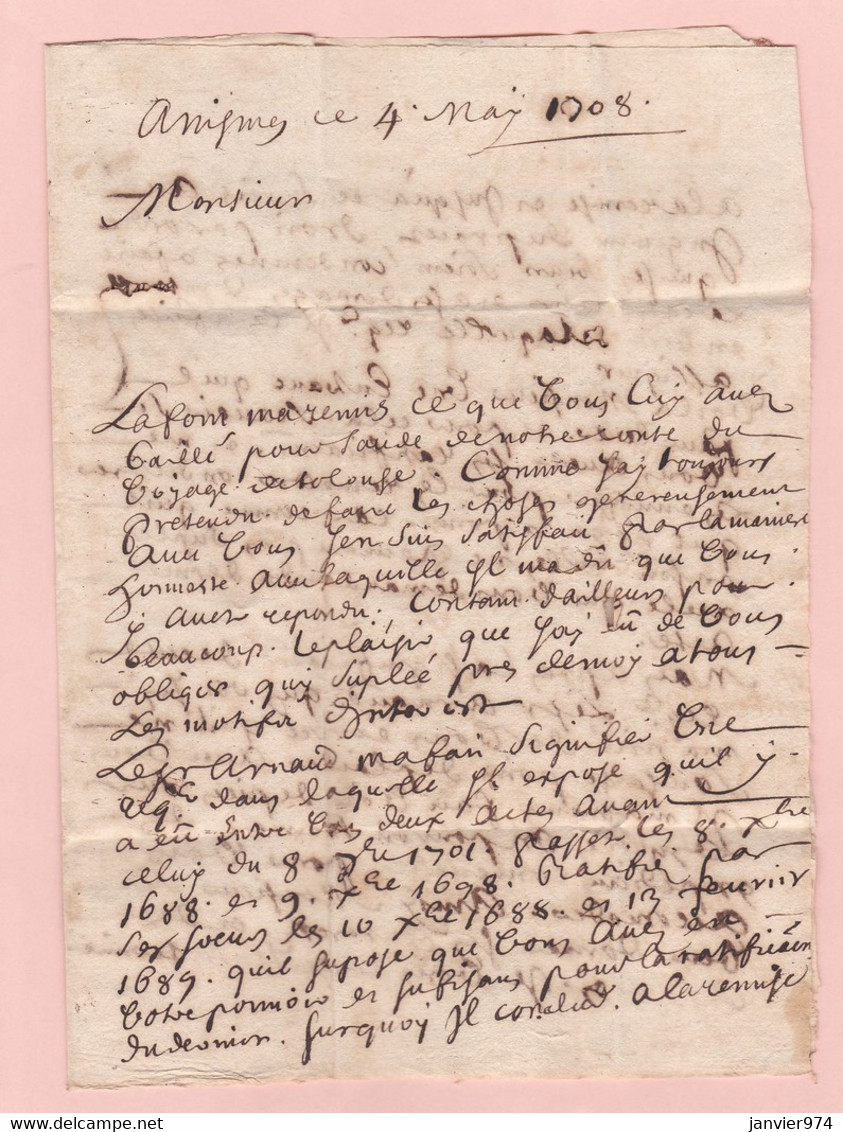 ce 4. May 1708.
Monsieur
Lafon ma remis ce que vous luy avez
baillé pour soude de notre conte du
voyage de tolouse. Comme jay toujours
pretendu de faire les choses genereusement
avec vous jen suis satisfait par la maniere
honneste avec laquelle il ma dit que vous
y avez repondu, contant dailleurs pour
beaucoup le plaisir que jay eu de vous
obliger qui suplée pres de moy a tous
les motifs d'interest
Le sr Arnaud ma fait signifier une
reqte dans laquelle il expose quil y
a eu entre vous deux actes avant
celuy du 8. 7bre 1701. passez les 8. xbre
1688. et 9. xbre 1698. ratifiez par
ses soeurs les 10 xbre 1688. et 13 fevrier
1689. quil supose que vous avez en
votre pouvoir et sufisans pour la ratification
du dernier. surquoy il conclud a la remise
delcampe.net
janvier974